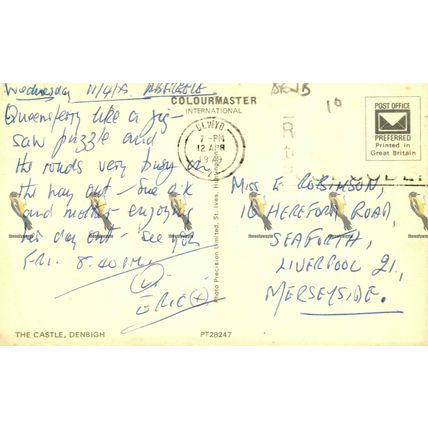 Wednesday 11/4/
Queensferry like a jig-
saw puzzle and
the roads very busy
the way out - one o.k
and mother enjoying
her day out - see you
FRI. 8.40 PM
ERIC
COLOURMASTER
INTERNATIONAL
CLWYD
7 - PM
12 APR
POST OFFICE
PREFERRED
Printed in
Great Britain
Photo Precision Limited, St. Ives,
MISS E ROBINSON,
10 HEREFORD ROAD,
SEAFORTH,
LIVERPOOL 21,
MERSEYSIDE.
THE CASTLE, DENBIGH
PT28247